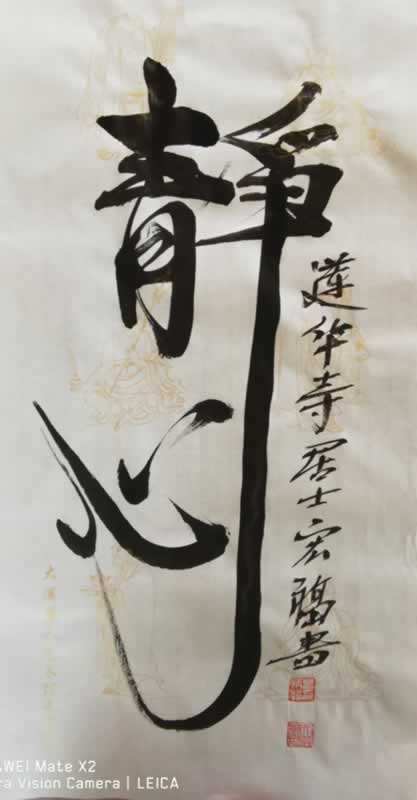 靜心
蓮华寺居士宏福書
AWEI Mate X2
ra Vision Camera | LEICA